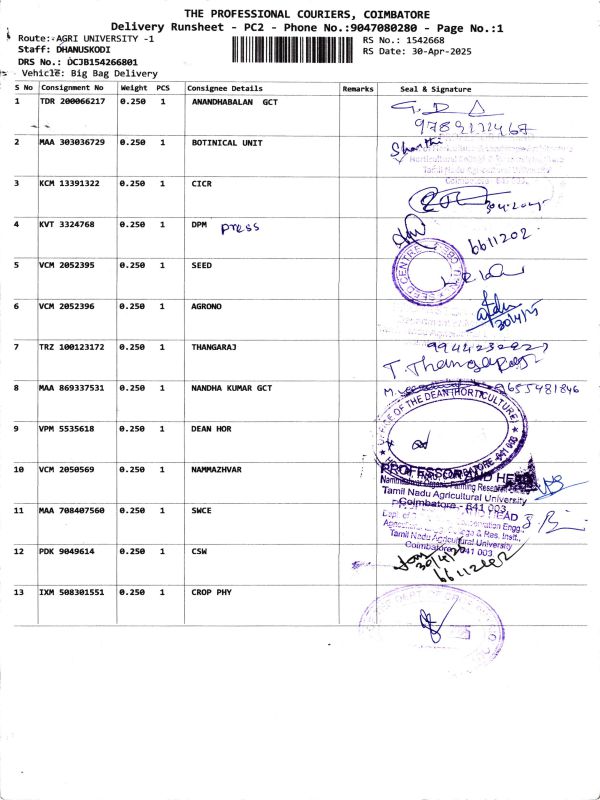 THE PROFESSIONAL COURIERS, COIMBATORE
Delivery Runsheet - PC2 - Phone No.:9047080280 - Page No.:1
Route: AGRI UNIVERSITY -1
RS No.: 1542668
Staff: DHANUSKODI
RS Date: 30-Apr-2025
DRS No.: DCJB154266801
Vehicle: Big Bag Delivery
S No Consignment No Weight PCS Consignee Details Remarks Seal & Signature
1 TDR 200066217 0.250 1 ANANDHABALAN GCT
2 MAA 303036729 0.250 1 BOTINICAL UNIT
Shanthi
Tamil Nadu Agricultural University
3 KCM 13391322 0.250 1 CICR
30.4.2025
4 KVT 3324768 0.250 1 DPM press
6611202
5 VCM 2052395 0.250 1 SEED
SEED CENTRE
6 VCM 2052396 0.250 1 AGRONO
30/4/25
7 TRZ 100123172 0.250 1 THANGARAJ
T. Thangaraj
8 MAA 869337531 0.250 1 NANDHA KUMAR GCT
9655481846
9 VPM 5535618 0.250 1 DEAN HOR
OFFICE OF THE DEAN (HORTICULTURE)
10 VCM 2050569 0.250 1 NAMMAZHVAR
PROFESSOR AND HEAD
Tamil Nadu Agricultural University
Coimbatore - 641 003
11 MAA 708407560 0.250 1 SWCE
HEAD
Tamil Nadu Agricultural University
Coimbatore - 641 003
12 PDK 9049614 0.250 1 CSW
30/4/25
6611202
13 IXM 508301551 0.250 1 CROP PHY